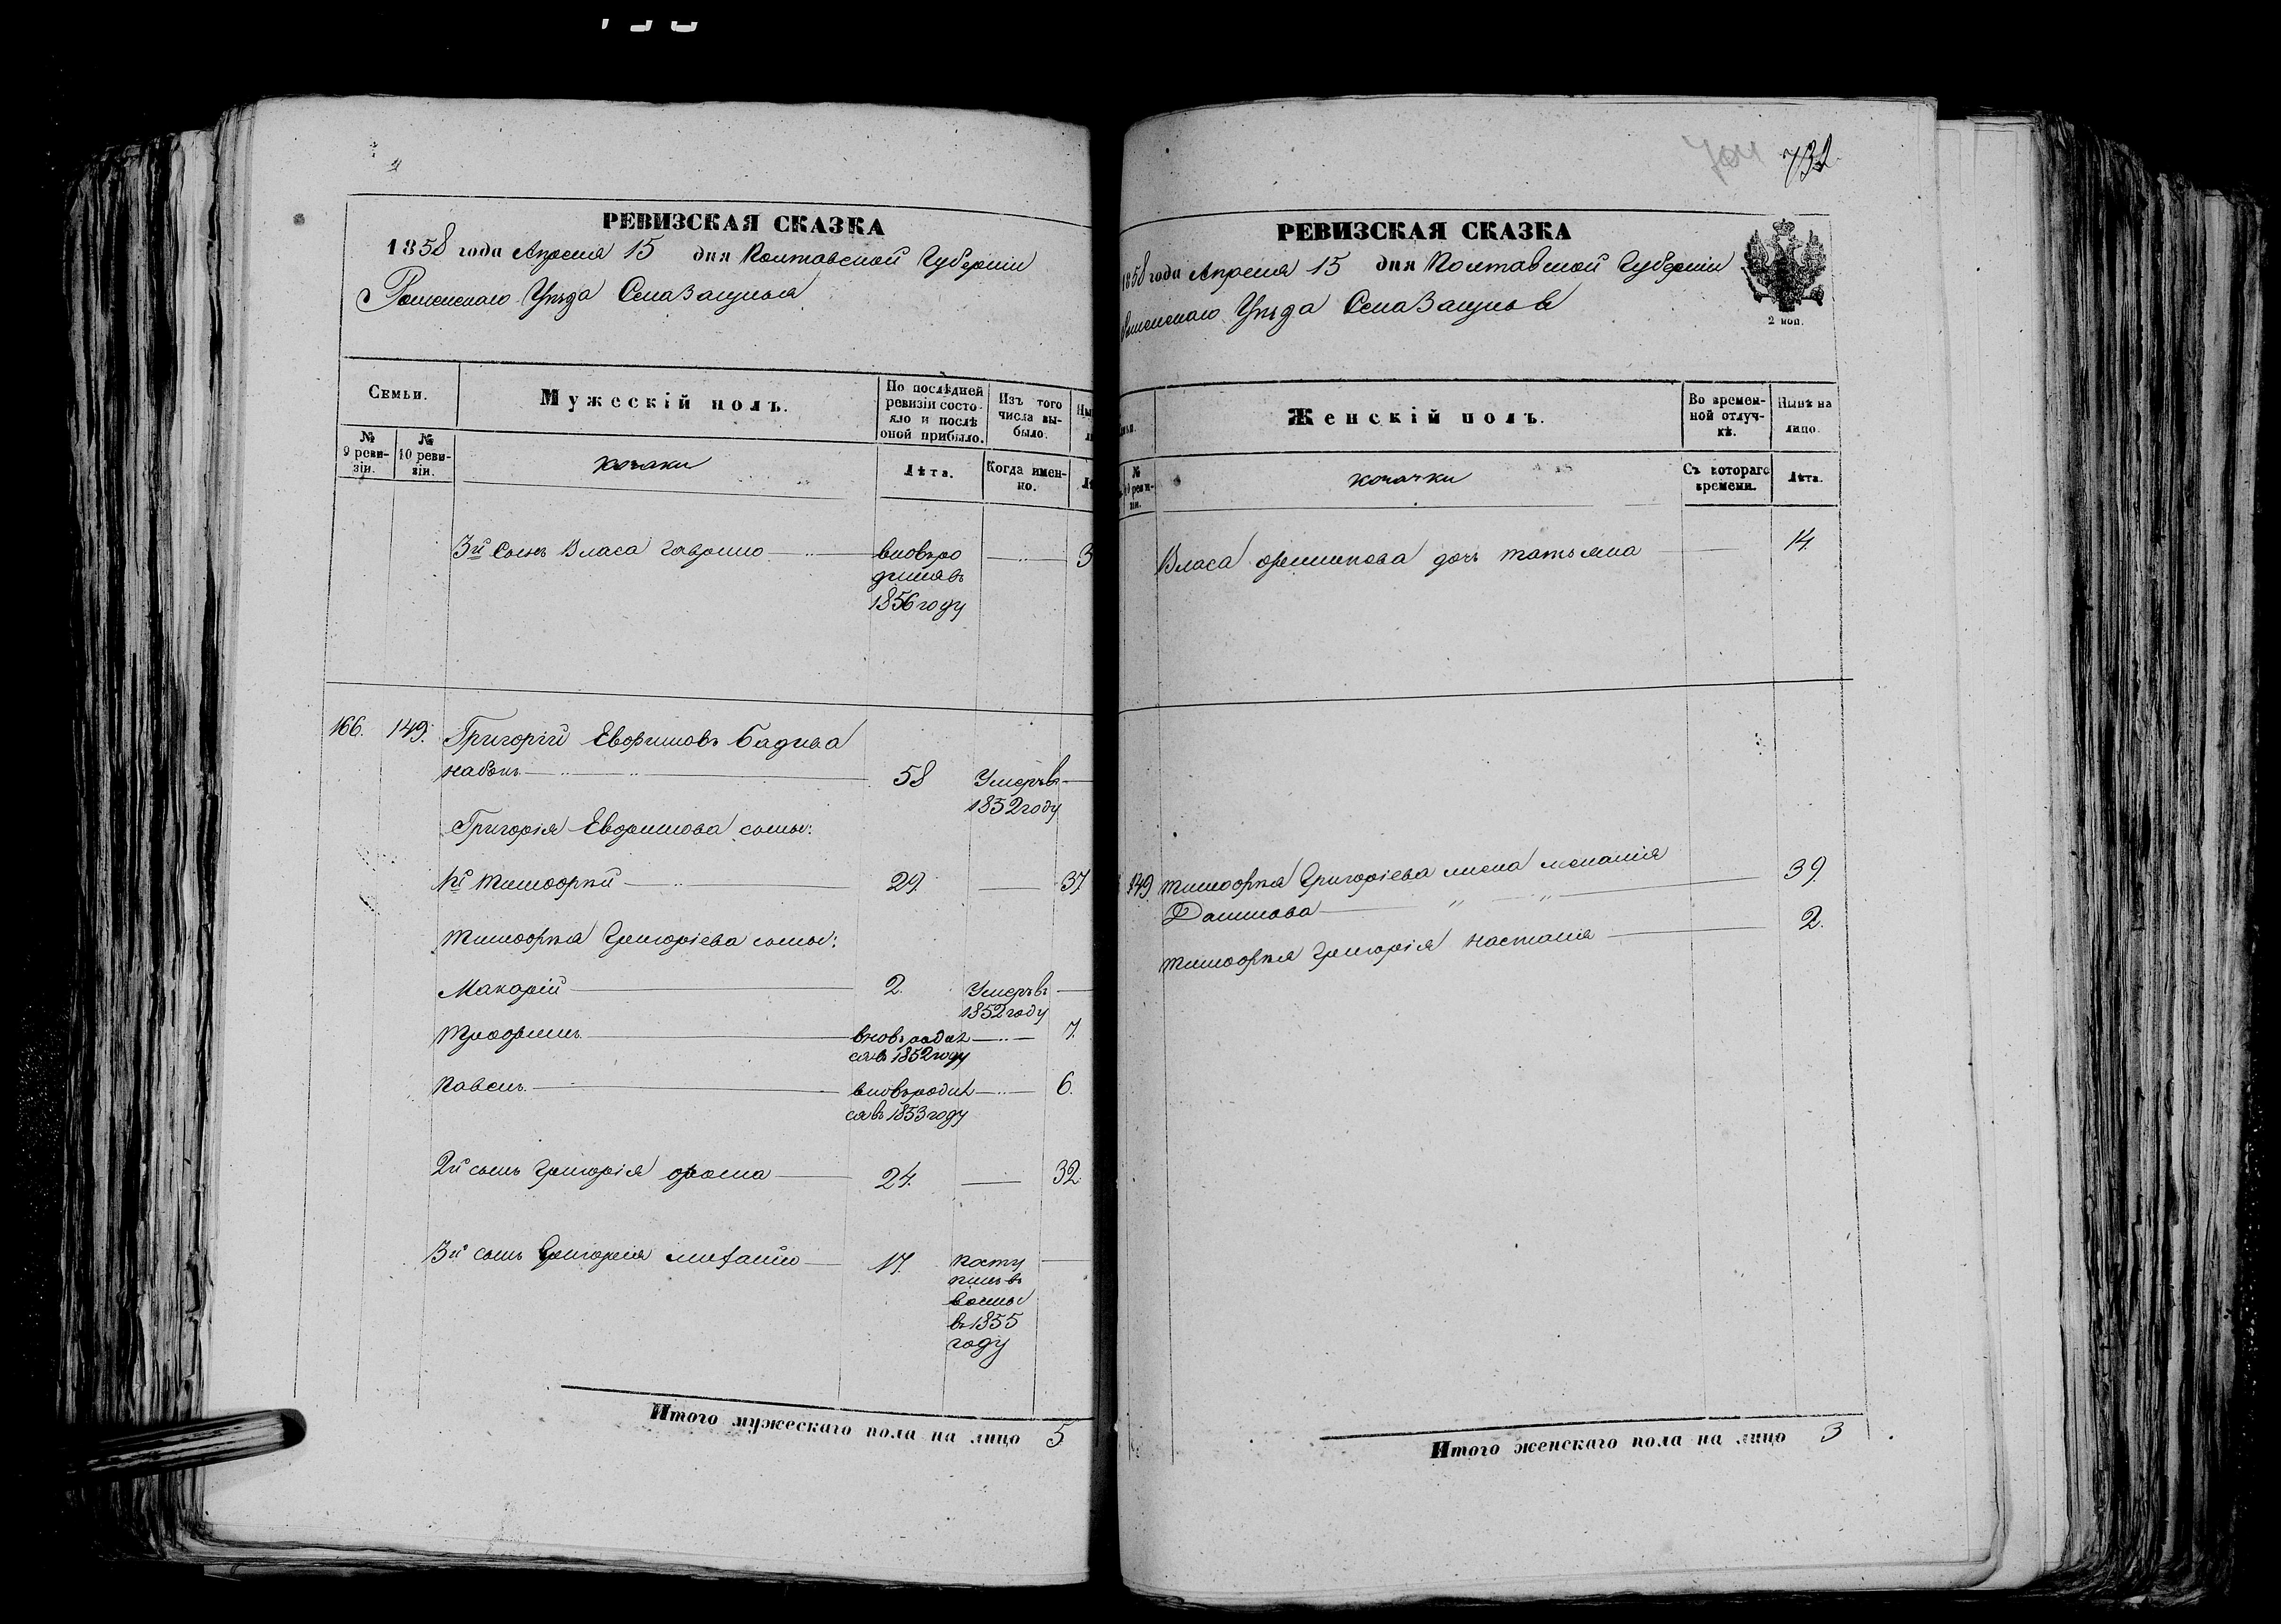 704 732
РЕВИЗСКАЯ СКАЗКА
1858 года Апреля 15 дня Полтавской Губерніи
Роменскаго Уезда Села Защилья
Семьи.
Мужескій полъ.
По послѣдней ревизіи состояло и послѣ оной прибыло.
Изъ того числа выбыло.
№ 9 ревизіи.
№ 10 ревизіи.
козаки
Лѣта.
Когда именно.
3й Сынъ Власа Гаврило вновьро 3
дилсявъ
1856 году
166. 149. Григорій Евфимовъ Бадиха
набокъ 58 Умеръвъ
1852 году
Григорія Евфимова сыны:
1й Тимофей 29 37
Тимофея Григоріева сыны:
Макарій 2. Умеръвъ
1852 году
Трофимъ вновьродил 7.
сявъ 1852 году
Павелъ вновьродил 6.
сявъ 1853 году
2й сынъ Григорія фома 24. 32
3й сынъ Григорія михайло 17. Посту
пилъ въ
воины
въ 1855
году
Итого мужескаго пола на лицо 5
РЕВИЗСКАЯ СКАЗКА
1858 года Апреля 15 дня Полтавской Губерніи
Роменскаго Уезда Села
2 коп.
Женскій полъ.
Во временной отлучкѣ.
Нынѣ на лицо.
№ 10 ревизіи.
козачки
Съ котораго времени.
Лѣта.
Власа дочь татьяна 14.
149. Тимофея Григоріева жена меланія
Данилова 39.
Тимофея Григорія настасія 2.
Итого женскаго пола на лицо 3